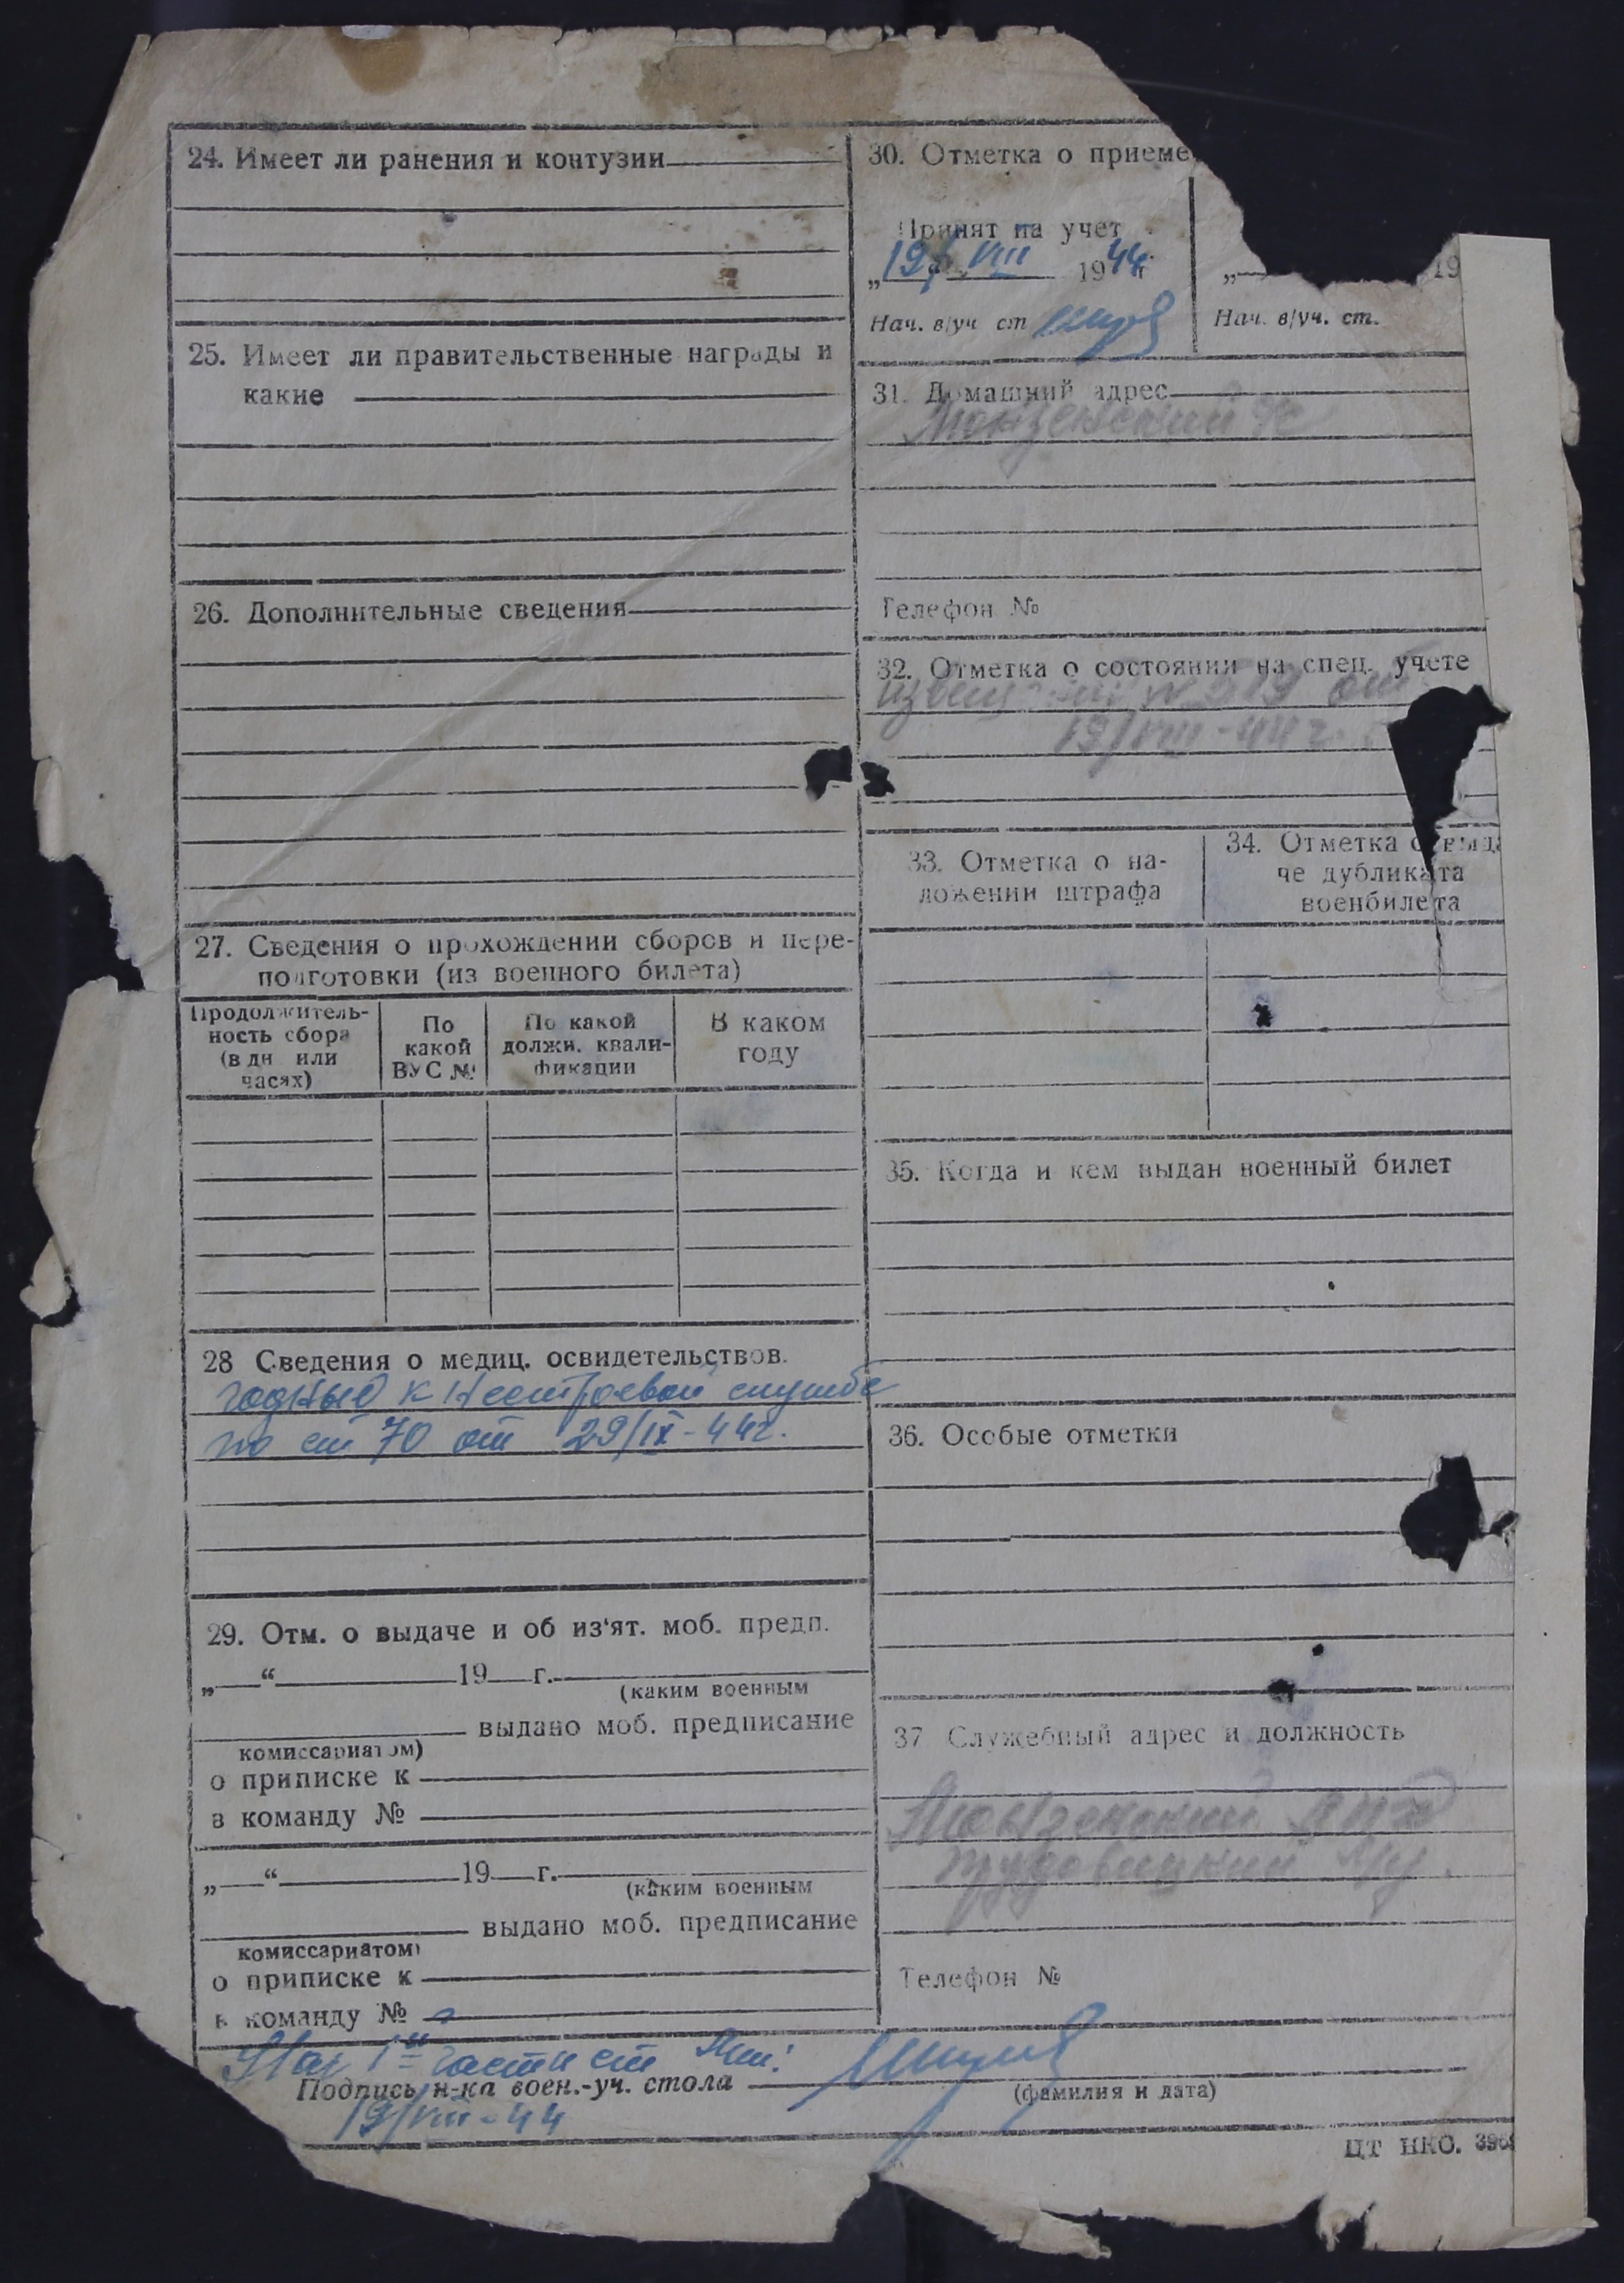 24. Имеет ли ранения и контузии
25. Имеет ли правительственные награды и
какие
26. Дополнительные сведения
27. Сведения о прохождении сборов и пере-
подготовки (из военного билета)
Продолжитель-
ность сбора
(в дн или
часях)
По
какой
ВУС №
По какой
должн. квали-
фикации
В каком
году
28 Сведения о медиц. освидетельствов.
годный к нестроевой службе
по ст 70 от 29/IX-44г.
29. Отм. о выдаче и об из'ят. моб. предп.
„ “ 19 г.
(каким военным
выдано моб. предписание
комиссариатом)
о приписке к
в команду №
„ “ 19 г.
(каким военным
выдано моб. предписание
комиссариатом)
о приписке к
в команду №
30. Отметка о приеме
Принят на учет
„19 VIII 1944 г
Нач. в/уч ст
„ 19
Нач. в/уч. ст.
31. Домашний адрес
Телефон №
32. Отметка о состоянии на спец. учете
от
19/VIII-44г.
33. Отметка о на-
ложении штрафа
34. Отметка о выда
че дубликата
военбилета
35. Когда и кем выдан военный билет
36. Особые отметки
37 Служебный адрес и должность
Телефон №
Нач 1й части ст
Подпись н-ка воен.-уч. стола
(фамилия и дата)
19/VIII-44
ЦТ НКО.